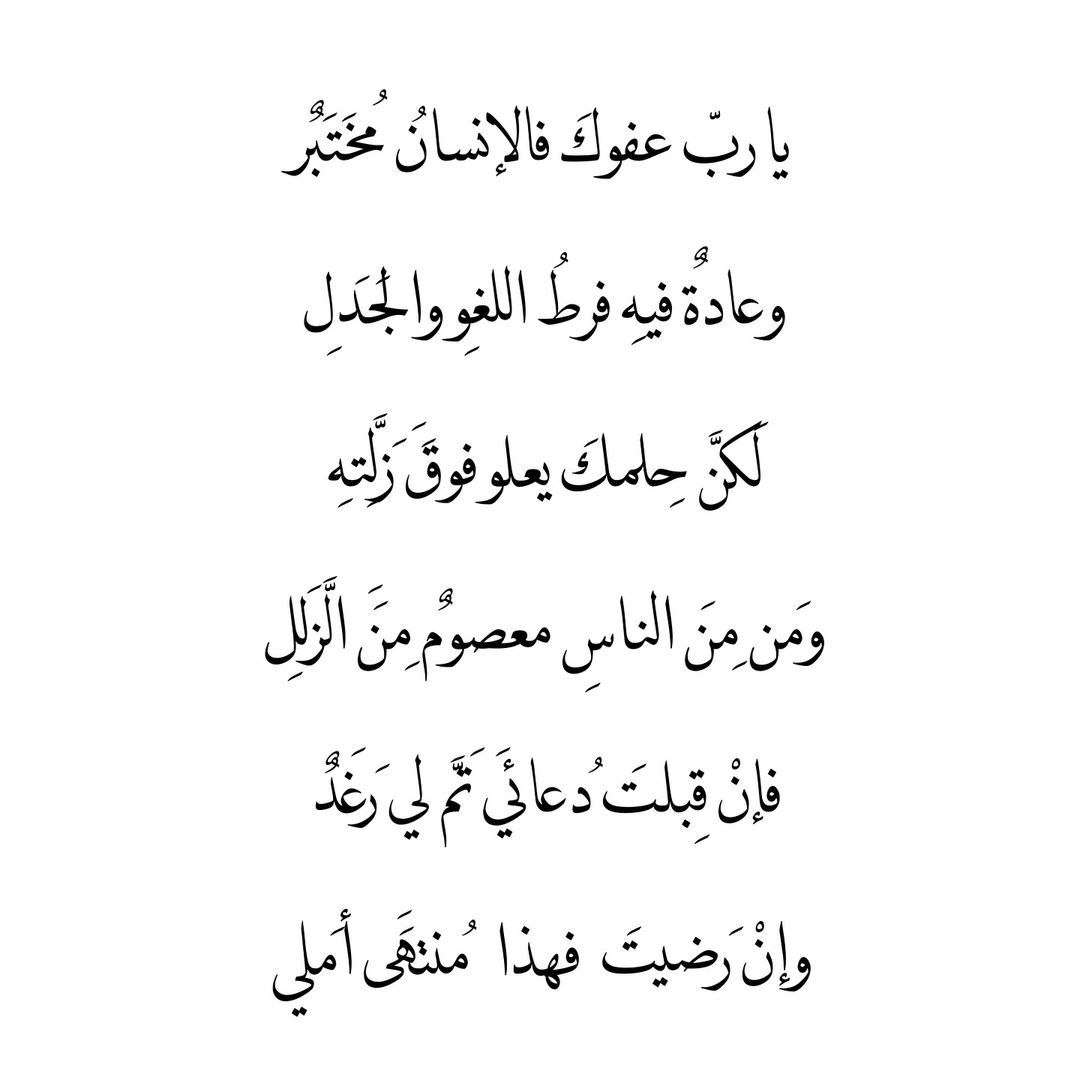 يا ربّ عفوكَ فالإنسانُ مُختَبَرٌ
وعادةٌ فيهِ فرطُ اللغوِ والجَدَلِ
لَكنَّ حِلمكَ يعلو فوقَ زَلَّتِهِ
وَمَن مِنَ الناسِ معصومٌ مِنَ الزَّلَلِ
فإنْ قِبلتَ دُعائَي تَمَّ لي رَغَدٌ
وإنْ رَضيتَ فهذا مُنتهَى أَملي